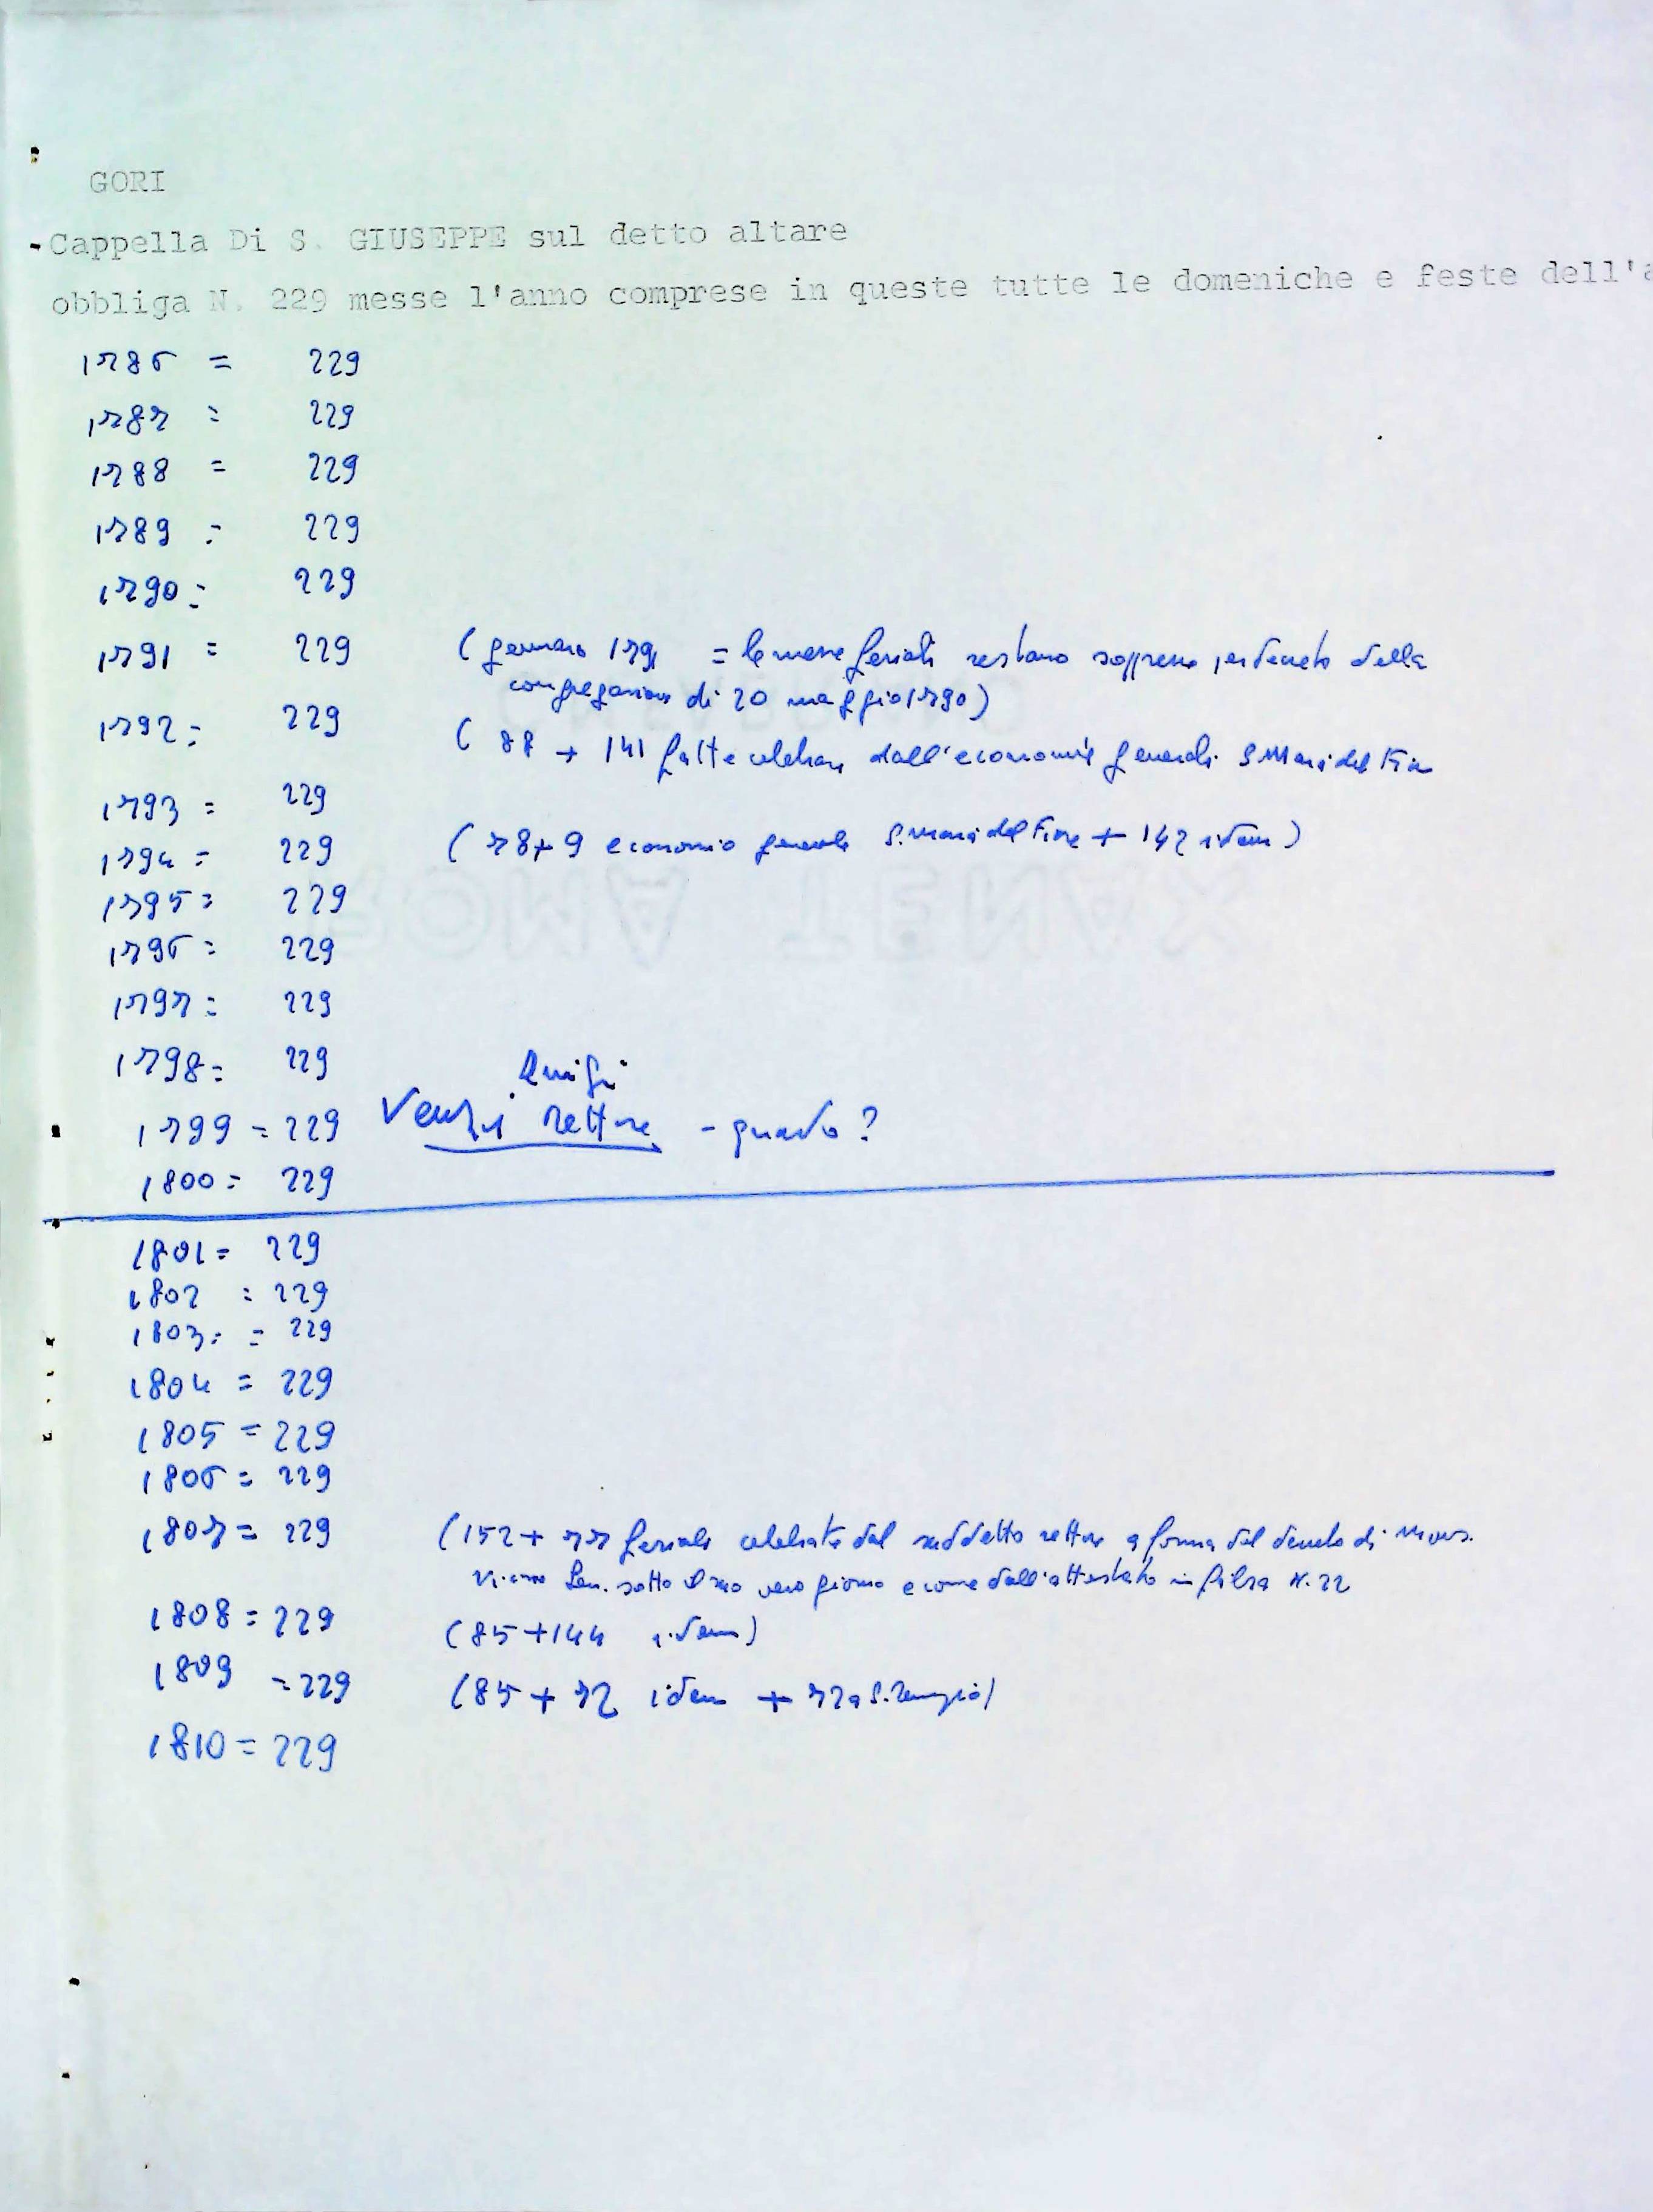 GORI
-Cappella Di S. GIUSEPPE sul detto altare
obbliga N. 229 messe l'anno comprese in queste tutte le domeniche e feste dell'a
1786 = 229
1787 = 229
1788 = 229
1789 = 229
1790 = 229
1791 = 229 ( gennaio 1791 = le messe feriali restano soppresse per decreto della
congregazione di 20 maggio 1790)
1792 = 229 ( 88 + 141 fatte celebrare dall'economia generale S Maria del Fior
1793 = 229
1794 = 229 ( 78 + 9 economio generale S. Maria del Fiore + 142 idem )
1795 = 229
1796 = 229
1797 = 229
1798 = 229
Luigi
1799 = 229 Rettore - quando?
1800 = 229
1801 = 229
1802 = 229
1803 = 229
1804 = 229
1805 = 229
1806 = 229
1807 = 229 (152 + 77 feriali celebrate dal suddetto rettore a forma del decreto di Mons.
Vicario Gen. sotto il suo vero giorno e come dall'attestato in filza N. 22
1808 = 229 (85 + 144 idem)
1809 = 229 (85 + 72 idem + 72 a S. Remigio)
1810 = 229